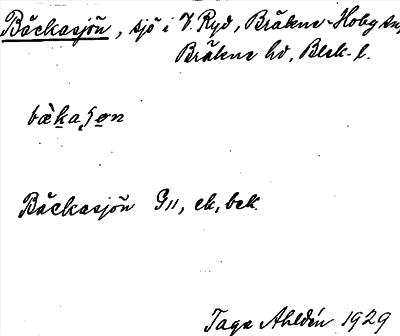 Bäckasjön, sjö i V. Ryd, Bräkne-Hoby sn,
Bräkne hd, Blek. l.
bæ̀kaʂøn
Bäckasjön G11, ek, bek.
Tage Ahldén 1929